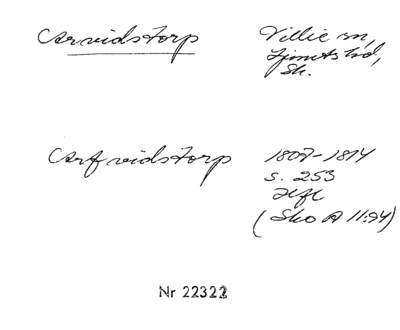 Arvidstorp Villie sn,
Ljunits hd,
Sk.
Arfvidstorp 1807-1814
s. 253
Hfl
(Sko A II:94)
Nr 22322